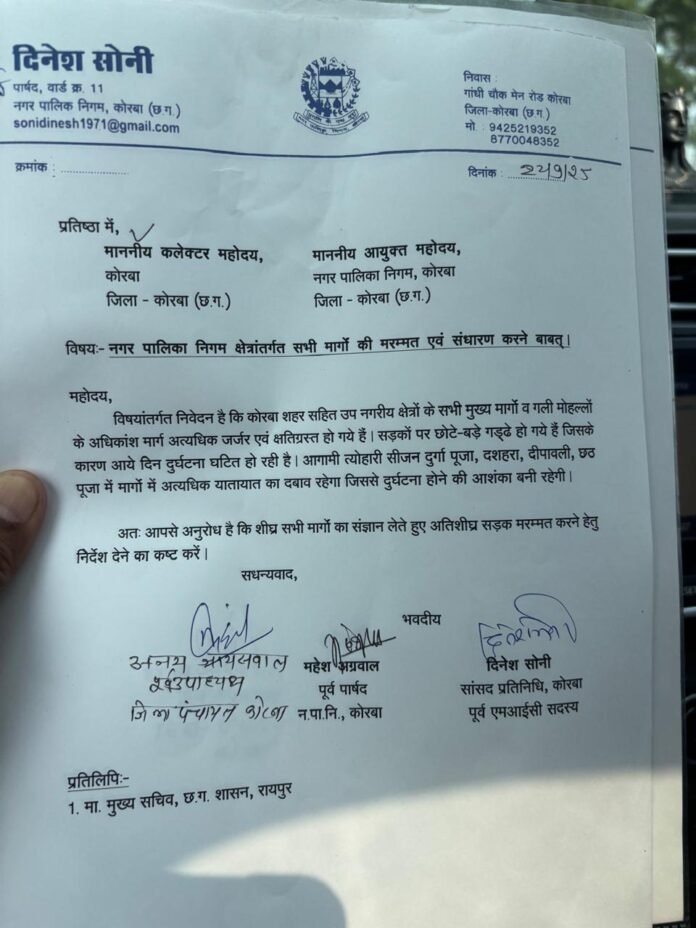 दिनेश सोनी
पार्षद, वार्ड क्र. 11
नगर पालिक निगम, कोरबा (छ.ग.)
sonidinesh1971@gmail.com
निवास :
गांधी चौक मेन रोड कोरबा
जिला-कोरबा (छ.ग.)
मो : 9425219352
8770048352
क्रमांक : ....................
दिनांक : 24/9/25
प्रतिष्ठा में,
माननीय कलेक्टर महोदय,
कोरबा
जिला - कोरबा (छ.ग.)
माननीय आयुक्त महोदय,
नगर पालिका निगम, कोरबा
जिला - कोरबा (छ.ग.)
विषयः- नगर पालिक निगम क्षेत्रांतर्गत सभी मार्गो की मरम्मत एवं संधारण करने बाबत्।
महोदय,
विषयांतर्गत निवेदन है कि कोरबा शहर सहित उप नगरीय क्षेत्रों के सभी मुख्य मार्गो व गली मोहल्लों
के अधिकांश मार्ग अत्यधिक जर्जर एवं क्षतिग्रस्त हो गये हैं। सड़कों पर छोटे-बड़े गड्ढे हो गये हैं जिसके
कारण आये दिन दुर्घटना घटित हो रही है। आगामी त्योहारी सीजन दुर्गा पूजा, दशहरा, दीपावली, छठ
पूजा में मार्गो में अत्यधिक यातायात का दबाव रहेगा जिससे दुर्घटना होने की आशंका बनी रहेगी।
अतः आपसे अनुरोध है कि शीघ्र सभी मार्गो का संज्ञान लेते हुए अतिशीघ्र सड़क मरम्मत करने हेतु
निर्देश देने का कष्ट करें।
सधन्यवाद,
भवदीय
अजय जायसवाल
पूर्व उपाध्यक्ष
जिला पंचायत कोरबा
महेश अग्रवाल
पूर्व पार्षद
न.पा.नि., कोरबा
दिनेश सोनी
सांसद प्रतिनिधि, कोरबा
पूर्व एमआईसी सदस्य
प्रतिलिपिः-
1. मा. मुख्य सचिव, छ.ग. शासन, रायपुर